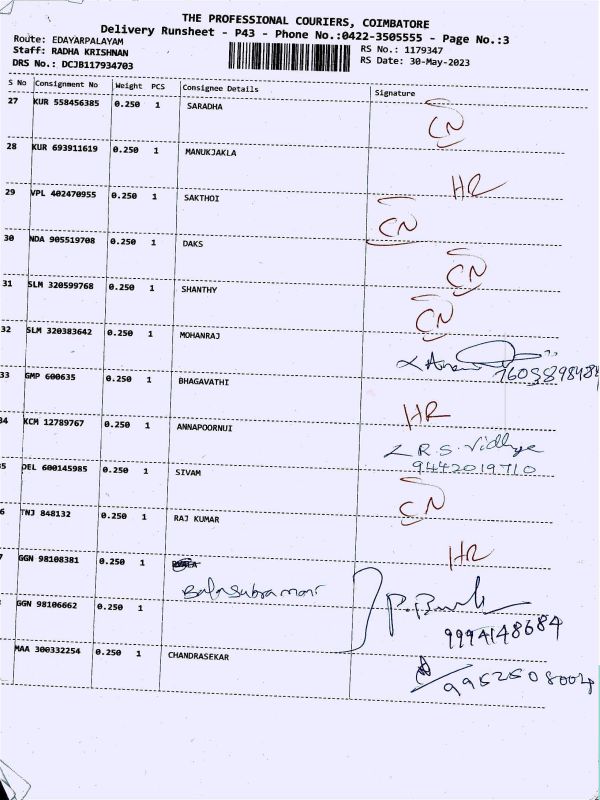 THE PROFESSIONAL COURIERS, COIMBATORE
Delivery Runsheet - P43 - Phone No.:0422-3505555 - Page No.:3
Route: EDAYARPALAYAM
RS No.: 1179347
Staff: RADHA KRISHNAN
RS Date: 30-May-2023
DRS No.: DCJB117934703
S No Consignment No Weight PCS Consignee Details Signature
27 KUR 558456385 0.250 1 SARADHA
CN
28 KUR 693911619 0.250 1 MANUKJAKLA
HR
29 VPL 402470955 0.250 1 SAKTHOI
CN
30 NDA 905519708 0.250 1 DAKS
CN
31 SLM 320599768 0.250 1 SHANTHY
CN
32 SLM 320383642 0.250 1 MOHANRAJ
33 GMP 600635 0.250 1 BHAGAVATHI
HR
34 KCM 12789767 0.250 1 ANNAPOORNUI
R.S. Vidhya
9442019710
5 DEL 600145985 0.250 1 SIVAM
CN
6 TNJ 848132 0.250 1 RAJ KUMAR
HR
7 GGN 98108381 0.250 1
Balasubramani
GGN 98106662 0.250 1
9994148684
MAA 300332254 0.250 1 CHANDRASEKAR
9952508004